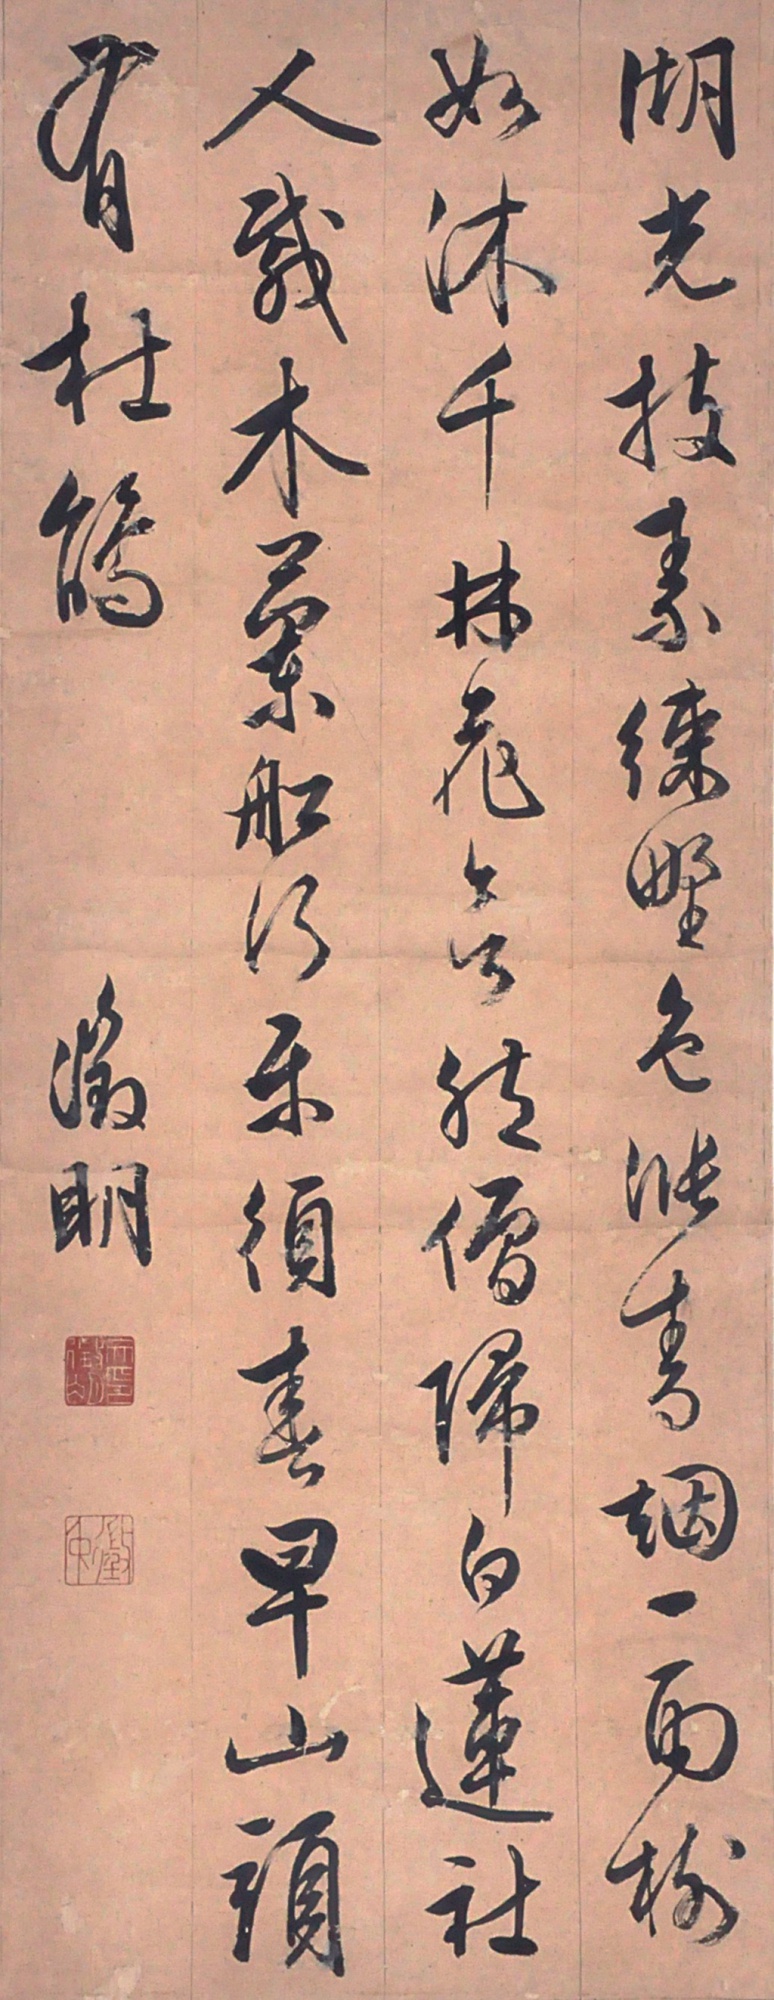 湖光披素練野色漲青烟一雨樹
如沐千林花欲然僧歸白蓮社
人載木蘭舩行樂須春早山頭
有杜鵑
徵明